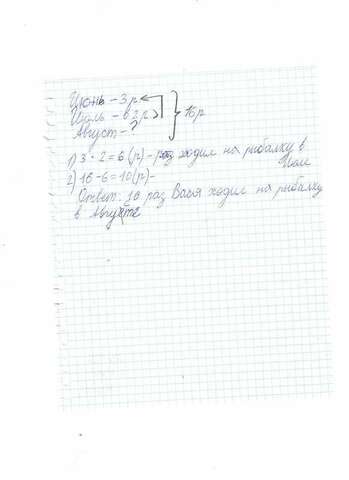 Июнь - 3 р
Июль - в 2 р
Август - ?
16 р
1) 3 · 2 = 6 (р) - раз ходил на рыбалку в Июле
2) 16 - 6 = 10 (р) -
Ответ: 10 раз Вася ходил на рыбалку
в Августе